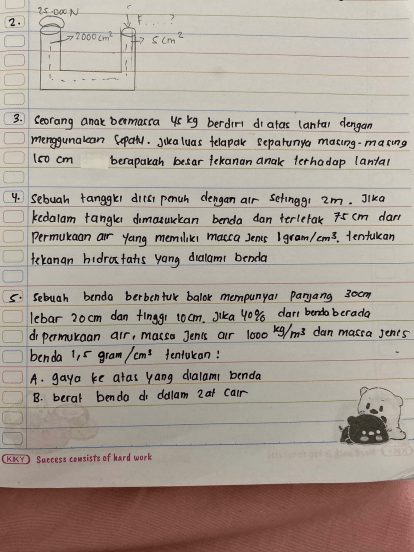 2.
25.000N
F....?
2000cm²
5 cm²
3. Seorang anak bermassa 45 kg berdiri di atas lantai dengan
menggunakan sepatu. Jika luas telapak sepatunya masing-masing
150 cm berapakah besar tekanan anak terhadap lantai
4. Sebuah tanggki diisi penuh dengan air setinggi 2m. Jika
kedalam tangki dimasukkan benda dan terletak 75 cm dari
Permukaan air yang memiliki massa jenis 1gram/cm³, tentukan
tekanan hidrostatis yang dialami benda
5. Sebuah benda berbentuk balok mempunyai panjang 30cm
lebar 20cm dan tinggi 10cm. Jika 40% dari benda berada
di permukaan air, massa jenis air 1000 kg/m³ dan massa jenis
benda 1,5 gram/cm³ tentukan!
A. gaya ke atas yang dialami benda
B. berat benda di dalam zat cair
KKY Success consists of hard work